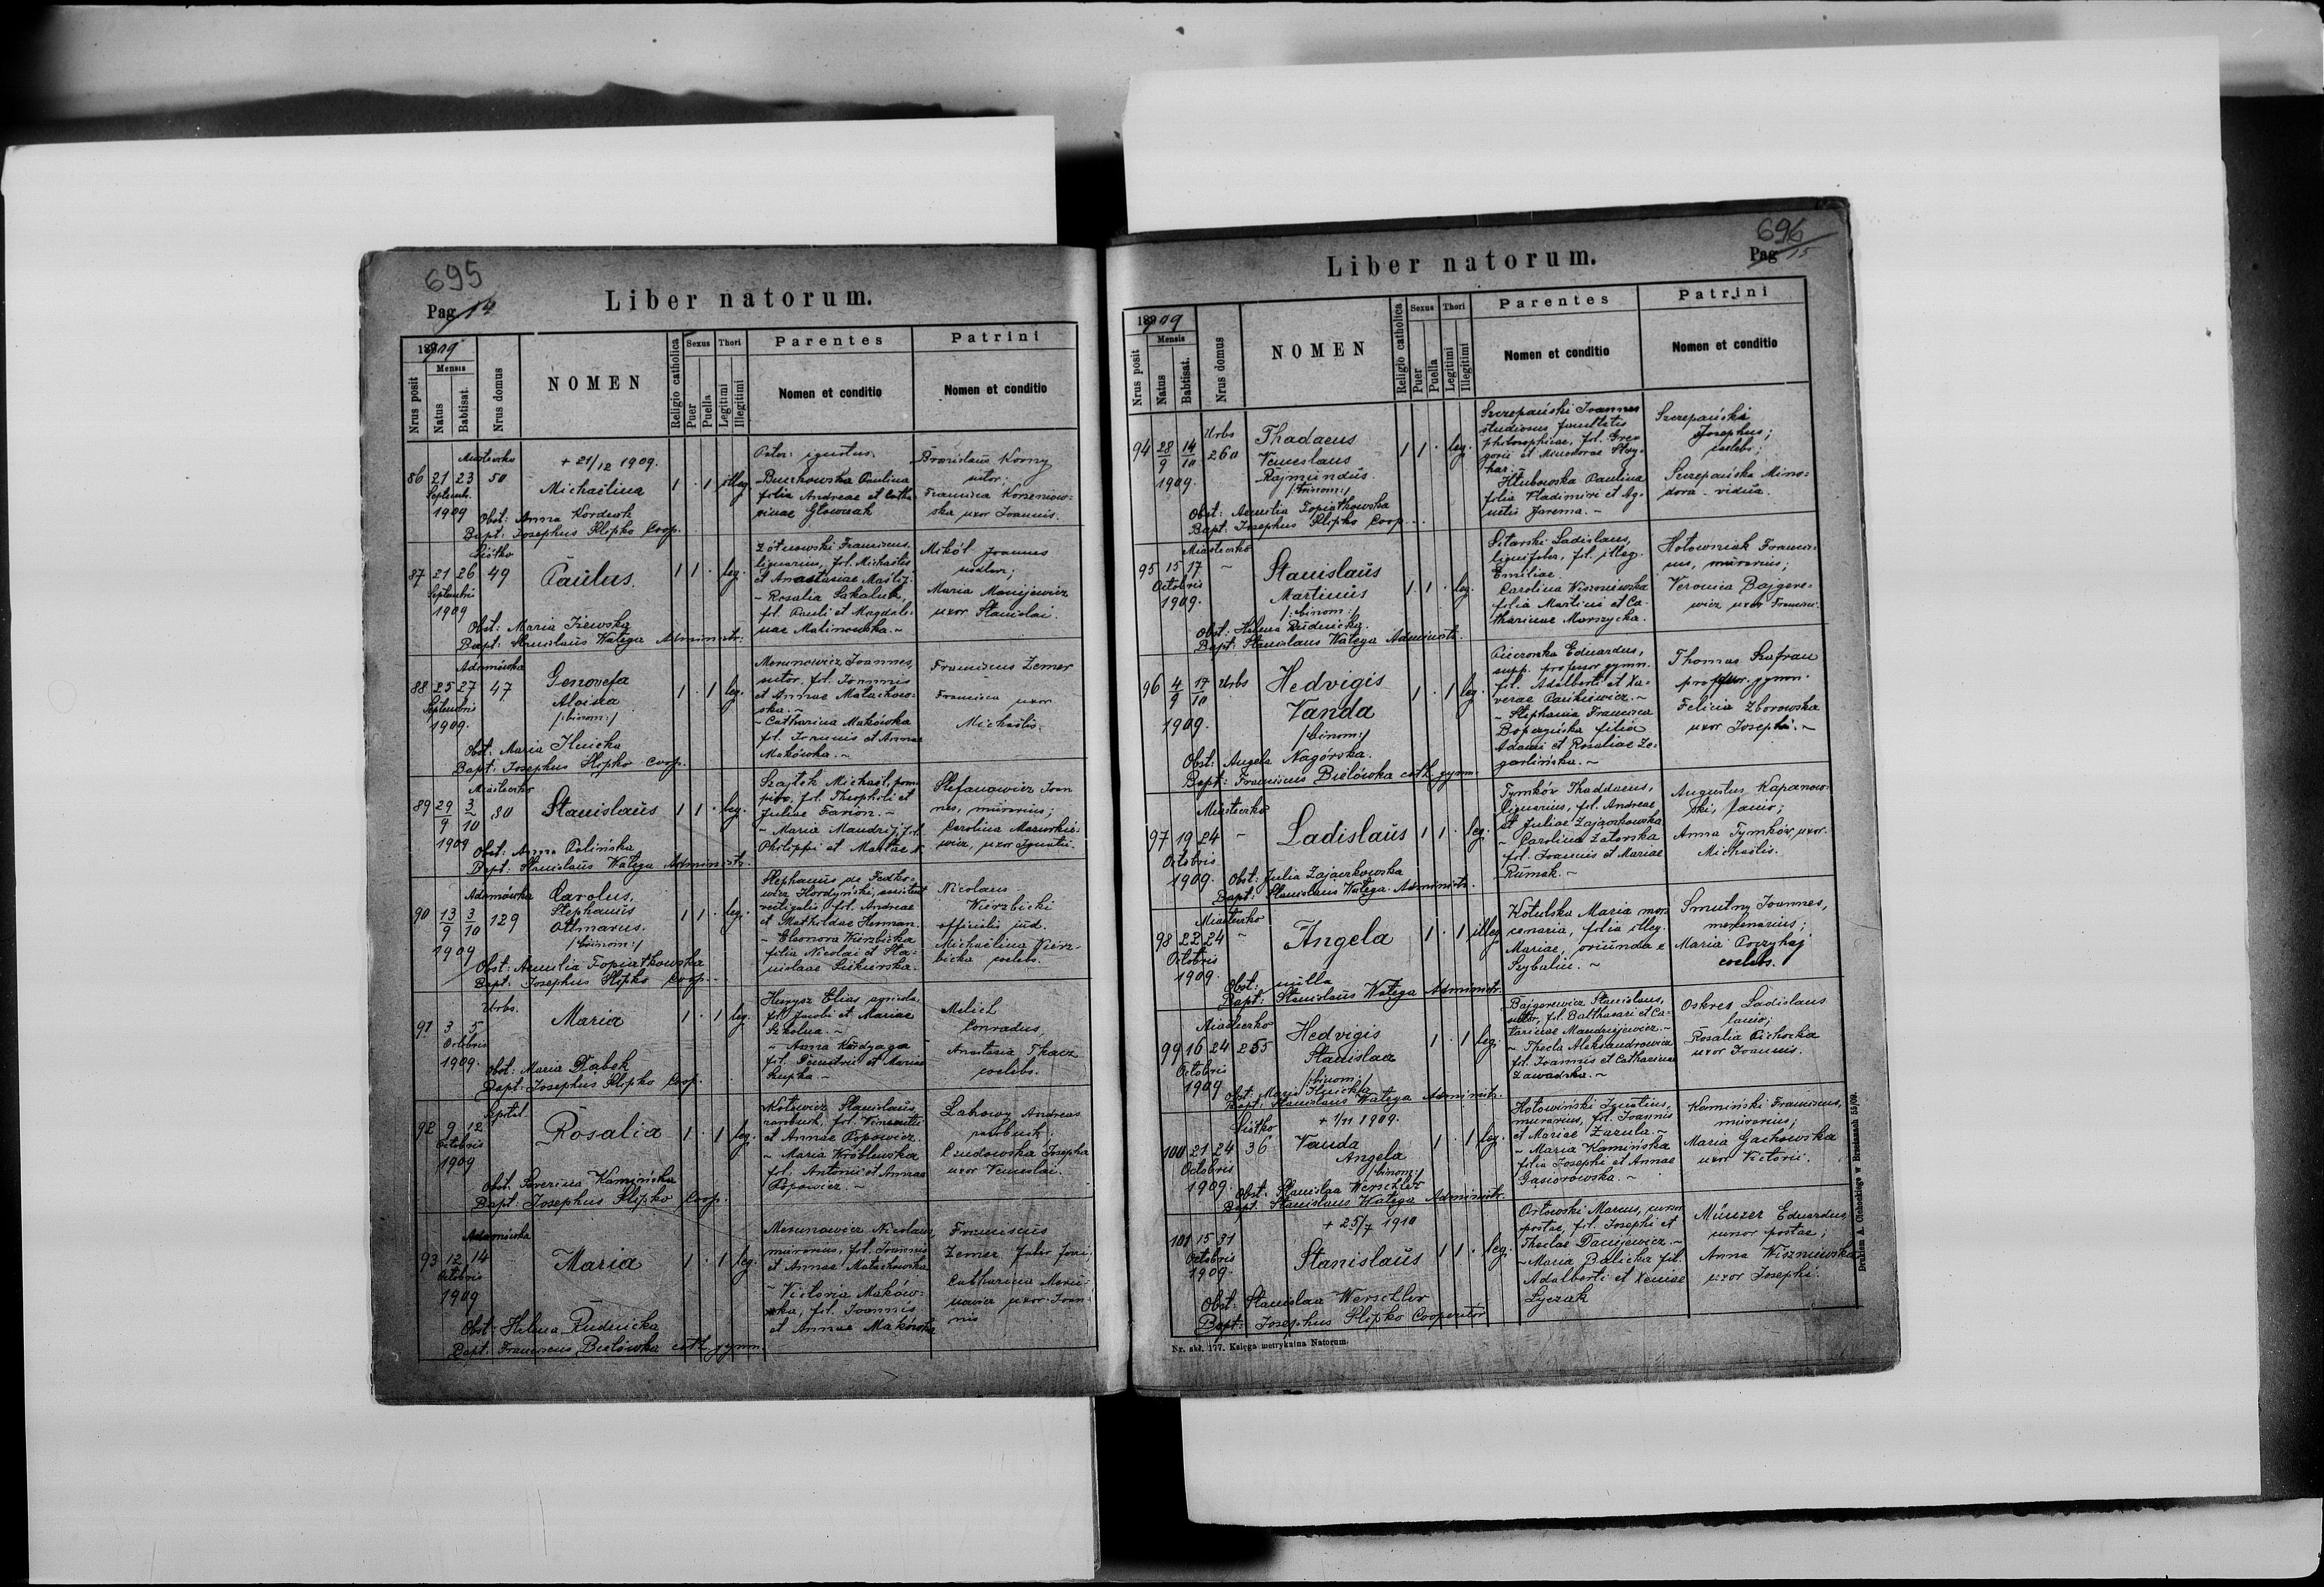 695
Pag. 14
Liber natorum.
1909
Nrus posit
Mensis
Natus
Babtisat.
Nrus domus
NOMEN
Religio catholica
Sexus
Puer
Puella
Thori
Legitimi
Illegitimi
Parentes
Nomen et conditio
Patrini
Nomen et conditio
Miasteczko
+ 21/12 1909.
86 21 23 50
Septemb.
1909
Michaëlina
1 . 1 illeg.
Pater: ignotus.
Buczkowska Paulina
filia Andreae et Catha-
rinae Głowczak
Bronislaus Korny
sutor;
Francisca Korzeniow-
ska uxor Joannis.
Obst: Anna Korduch
Bapt: Josephus Slipko Coop.
Siółko
87 21 26 49
Septembris
1909
Paulus.
1 1 . leg.
Żółnowski Franciscus,
lignarius, fil. Michaëlis
et Anastasiae
- Rosalia Sakaluk,
fil. Pauli et Magdale-
nae Malinowska. ~
Mikól Joannes
Maria Manijewicz
uxor Stanislai.
Obst: Maria Iżewska
Bapt: Stanislaüs Watęga Administr.
Adamówka
88 25 27 47
Septembris
1909.
Genovefa
Aloisia
/:binom:/
1 . 1 leg.
Merunowicz Joannes,
sutor, fil. Joannis
et Annae Małachow-
ska. ~
~ Catharina Makówka
fil. Joannis et Annae
Makówka. ~
Franciscus Zemer
Francisca uxor
Michaëlis.
Obst: Maria Ilnicka
Bapt: Josephus Slipko Coop.
Miasteczko
89 29/9 3/10 80
1909
Stanislaüs
1 1 . leg.
Szajtek Michaël,
fil. Theophili et
Juliae Farion. ~
~ Maria Mandrij, fil.
Philippi et Marthae
Stefanowicz Joan
nes, murarius;
Carolina Mazurkie-
wicz, uxor Ignatii.
Obst: Anna Polińska
Bapt: Stanislaüs Watęga Administr.
Adamówka
90 13/9 3/10 129
1909
Carolus,
Stephanus
Otmarus.
1 1 . leg.
Stephanus de Fedko-
wicz Hordyński, assistent
vectigalis, fil. Andreae
et Mathildae Herman.
~ Eleonora Wierzbicka
filia Nicolai et Sta-
nislaae
Nicolaus
Wierzbicki
officialis jud.
Michaëlina Wierz-
bicka coelebs.
Obst: Aemilia Topiatkowska
Bapt: Josephus Slipko Coop.
Urbs.
91 3 5
Octobris
1909.
Maria
1 . 1 leg.
Hunysz Elias agricola
fil. Jacobi et Mariae
Szkolna. ~
~ Anna
fil. Demetrii et Mariae
Melich
Conradus,
Anastasia Tkacz
coelebs.
Obst: Maria Dłabek
Bapt: Josephus Slipko Coop.
92 9 12
Octobris
1909
Rosalia
1 . 1 leg.
Wotowicz Stanislaüs
fil. Vincentii
et Annae Popowicz.
~ Maria Wróblewska
fil. Antonii et Annae
Popowicz. ~
Lahowy Andreas
Josepha
uxor Venceslai.
Obst. Severina Kamińska
Bapt: Josephus Slipko Coop.
Adamówka
93 12 14
Octobris
1909
Maria
1 . 1 leg.
Merunowicz Nicolaus,
murarius, fil. Joannis
et Annae Małachowska
~ Victoria Maków-
ska, fil. Joannis
et Annae Makówka
Franciscus
Zemer
Catharina Meru-
nowicz uxor Joan-
nis
Obst: Helena Rudnicka
Bapt: Franciscus Bielówka cath. gymn.
696
Pag 15
Liber natorum.
1909
Nrus posit
Mensis
Natus
Babtisat.
Nrus domus
NOMEN
Religio catholica
Sexus
Puer
Puella
Thori
Legitimi
Illegitimi
Parentes
Nomen et conditio
Patrini
Nomen et conditio
Urbs
94 28/9 14/10 260
1909.
Thadaeus
Venceslaus
Rajmundus
/:trinom:/
1 1 . leg.
Szczepański Joannes
studiosus facultatis
philosophicae, fil. Gre-
gorii et Minodorae
Hłubowska Paulina
filia Vladimiri et Ag-
netis Jarema. ~
Szczepański
Josephus;
coelebs;
Szczepańska Mino-
dora - vidua.
Obst: Aemilia Topiatkowska
Bapt. Josephus Slipko Coop.
Miasteczko
95 15 17 ~
Octobris
1909.
Stanislaüs
Martinus
/:binom:/
1 1 . leg.
Sitarski Ladislaus,
fil. illeg.
Emiliae.
Carolina Wiszniowska
filia Martini et Ca-
tharinae Marszycka.
Hołowniak Francis-
cus, murarius;
Veronica Bajgere-
wicz uxor Francisci.
Obst: Helena Rudnicka.
Bapt: Stanislaus Watęga Administr.
96 4/9 17/10 Urbs
1909.
Hedvigis
Vanda
/:binom:/
1 . 1 leg.
Eduardus,
supp. professor gymn.
fil. Adalberti et Xa-
verae
~ Stephania Francisca
filia
Adami et Rosaliae
Thomas Szafran
professor gymn.
Felicia Zborowska
uxor Josephi. ~
Obst: Angela Nagórska.
Bapt: Franciscus Bielówka cath. gymn.
Miasteczko
97 19 24 ~
Octobris
1909.
Ladislaüs
1 1 . leg.
Tymków Thaddaeus,
lignarius, fil. Andreae
et Juliae Zajączkowska
~ Carolina Zatorska
fil. Joannis et Mariae
Rumak. ~
Augustus Kapanow-
ski, lanio;
Anna Tymków uxor
Michaëlis.
Obst: Julia Zajączkowska
Bapt: Stanislaus Watęga Administr.
Miasteczko
98 22 24 ~
Octobris
1909.
Angela
1 . 1 illeg.
Kotulska Maria mer-
cenaria, filia illeg.
Mariae, oriunda e
Szybalin. ~
Smutny Joannes,
mercenarius;
Maria
coelebs.
Obst: nulla
Bapt: Stanislaüs Watęga Administr.
Miasteczko
99 16 24 255
Octobris
1909
Hedvigis
Stanislaa
/:binom:/
1 . 1 leg.
Bajgerewicz Stanislaus,
sutor, fil. Balthasari et Ca-
tarinae Mandryjewicz. ~
~ Thecla Aleksandrowicz
fil. Joannis et Catharinae
Zawadzka. ~
Oskres Ladislaus
lanio;
Rosalia Cichocka
uxor Joannis.
Obst. Maria Ilnicka
Bapt. Stanislaus Watęga Administr.
Siółko
+ 1/11 1909.
100 21 24 36
Octobris
1909.
Vanda
Angela
/:binom:/
1 . 1 leg.
Hołowiński Ignatius,
murarius, fil. Joannis
et Mariae Zarula. ~
~ Maria Kamińska
filia Josephi et Annae
Gąsiorowska. ~
Kamiński Franciscus,
murarius;
Maria Gachowska
uxor Victorii.
Obst. Stanislaa Werschler
Bapt. Stanislaus Watęga Administr.
+ 25/7 1910
101 15 31
Octobris
1909.
Stanislaüs
1 1 . leg.
Ortowski Marcus, cursor
postae, fil. Josephi et
Theclae Danijewicz. ~
~ Maria Balicka fil.
Adalberti et Xeniae
Łyczak
Münzer Eduardus
cursor postae;
Anna Wiszniewska
uxor Josephi.
Obst: Stanislaa Werschler
Bapt: Josephus Slipko Cooperator
Nr. skł. 177. Księga metrykalna Natorum.
Drukiem A. Cichockiego w Brzeżanach 55/09.